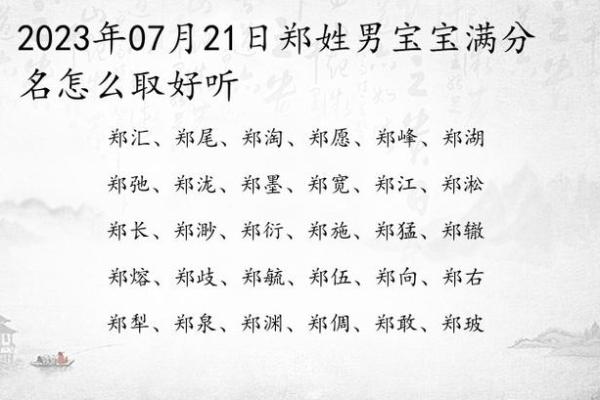 2023年07月21日郑姓男宝宝满分
名怎么取好听
郑汇、郑尾、郑淘、郑愿、郑峰、郑湖
郑弛、郑泷、郑墨、郑宽、郑江、郑淞
郑长、郑渺、郑衍、郑施、郑猛、郑辙
郑熔、郑歧、郑毓、郑伍、郑向、郑右
郑犁、郑泉、郑渊、郑倜、郑敢、郑玻